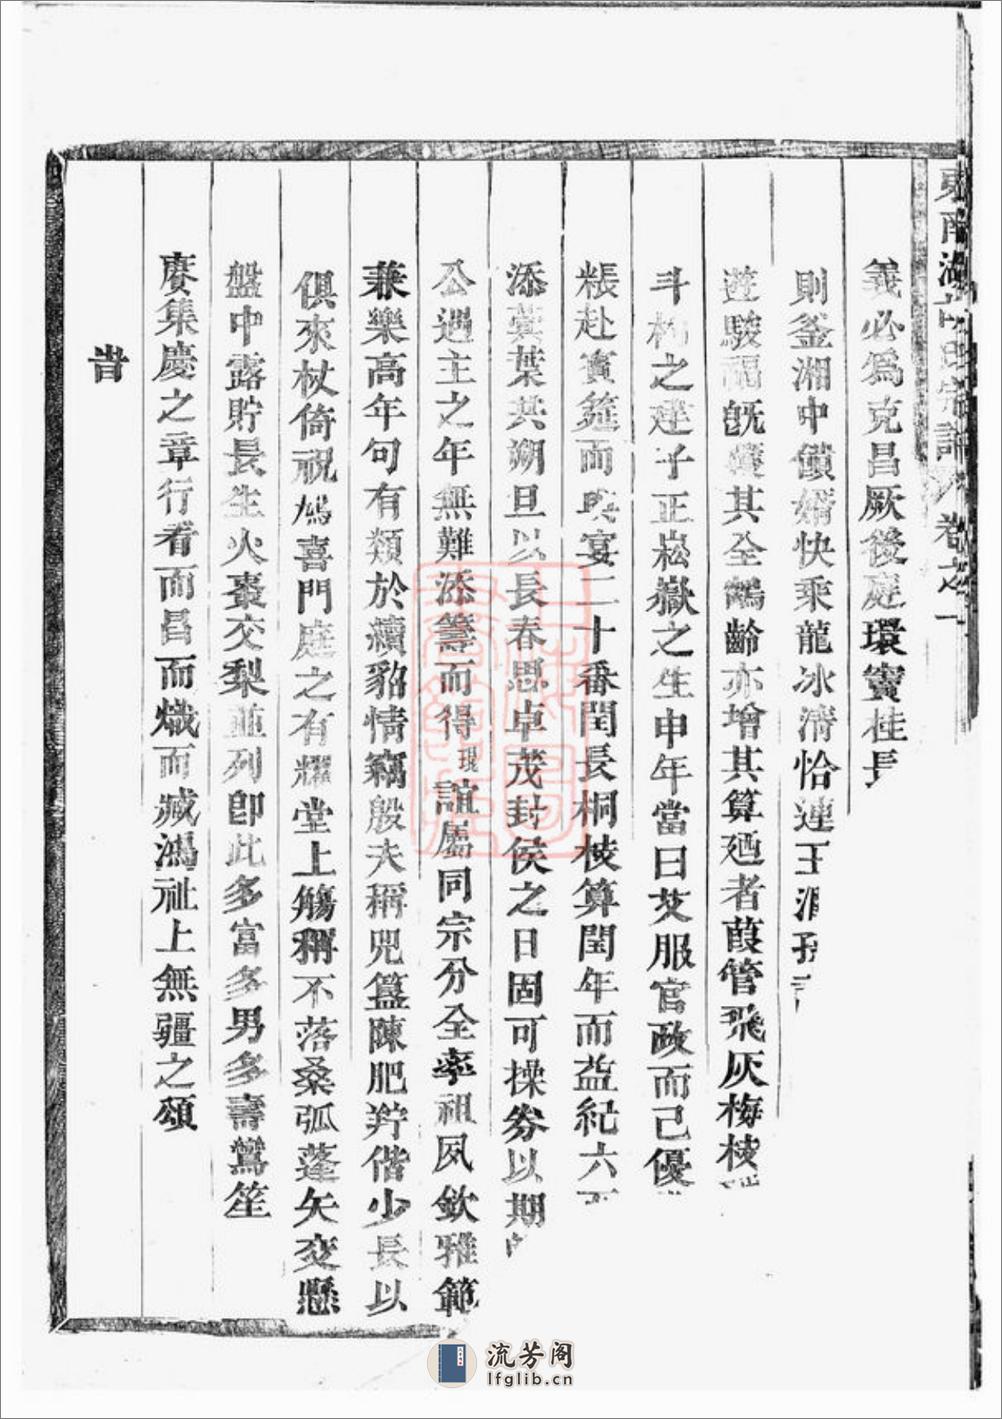 義必為克昌厥後庭環竇桂長
則釜湘中饋婿快乘龍冰清恰連玉潤孫
遊駿福旣獲其全鶴齡亦增其算廼者葭管飛灰梅棱
斗柄之建子正崧嶽之生申年當曰艾服官政而已優
粻赴賓筵而與宴二十番閏長桐棱算閏年而益紀六
添蓂葉共朔旦以長春思卓茂封侯之日固可操券以期
公遇主之年無難添籌而得 現 誼屬同宗分全率祖夙欽雅範
兼樂高年句有類於續貂情竊殷夫稱兕簋陳肥羜偕少長以
俱來杖倚祝鳩喜門庭之有耀堂上觴稱不落桑弧蓬矢交懸
盤中露貯長生火棗交梨並列卽此多富多男多壽鸞笙
賡集慶之章行看而昌而熾而臧鴻祉上無疆之頌
昔
卷之一
流芳阁
lfglib.cn